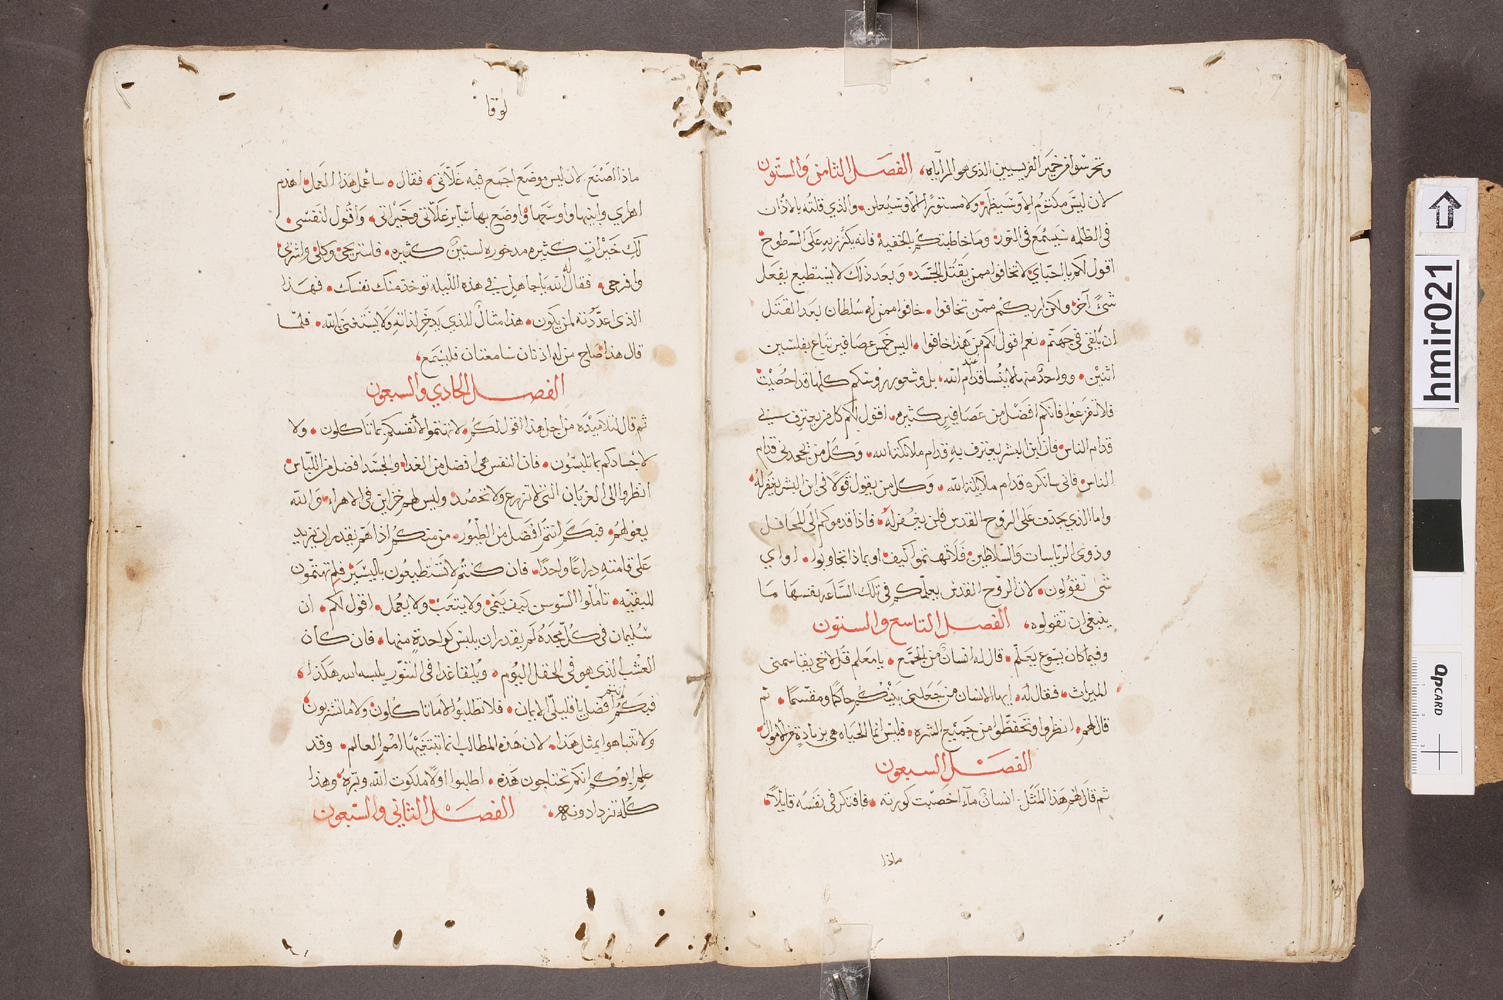 وتحرسوا من خمير الفريسيين الذي هو المراياه، الفصل الثامن والستون
لان ليس مكتوم الا وسيظهر ولا مستورًا الا وسيعلن والذي قلتُه بالاذان
في الظلمه سيسمع في النور وما خاطبتكم بالخفية فانه يكرز به على السطوح
اقول لكم يا احبّاي لا تخافوا ممن يقتل الجسد وبعد ذلك لا يستطيع يفعل
شيئ آخر ولكن اريكم ممن تخافوا خافوا ممن له سلطان بعد القتل
ان يلقى في جهنم نعم اقول لكم من هذا خافوا اليس خمس عصافير تباع بفلسين
اثنين وواحد منها لا ينسا قدام الله بل وشعور رؤسكم كلها قد احصيت
فلا تفزعوا فانكم افضل من عصافير كثيره اقول لكم كل من يعترف بي
قدام الناس فان ابن البشر يعترف به قدام ملائكة الله وكل من جحدني قدام
الناس فاني سانكره قدام ملائكة الله وكل من يقول قولا في ابن البشر يغفر له
واما الذي يجدف على الروح القدس فلن يغفر له فاذا قدموكم الى المحافل
وذوي الرياسات والسلاطين فلا تهتموا كيف او بماذا تجاوبوا او اي
شي تقولون لان الروح القدس يعلمكم في تلك الساعة بفسها ما
ينبغي ان تقولوه، الفصل التاسع والستون
وفيما كان يسوع يعلم قال له انسان من الجمع يا معلم قل لاخي يقاسمني
الميراث فقال له ايها الانسان من جعلني عليكم حاكما ومقسما ثم
قال لهم انظروا وتحفظوا من جميع الشره فليس انما الحياه هي بزيادة من الاموال
الفصل السبعون
ثم قال لهم هذا المثل: انسان ما اخصبت كورته فافتكر في نفسه قايلا
ماذا
لوقا
ماذا اصنع لان ليس موضع اجمع فيه غلاتي فقال ساعمل هذا العمل اهدم
اهراي وابنيها واوسعها واوضع بها ساير غلاتي وخيراتي واقول لنفسي
لك خيرات كثيره مدخورة لسنين كثيره فاستريحي وكلي واشربي
وافرحي فقال له الله يا جاهل في هذه الليله توخذ منك نفسك فهذا
الذي اعددته لمن يكون هذا مثال للذي يدخر لذاته ولا يستغني بالله فلما
قال هذا صاح من له اذنان سامعتان فليسمع،
الفصل الحادي والسبعون
ثم قال لتلاميذه من اجل هذا اقول لكم لا تهتموا لانفسكم بما تاكلون ولا
لاجسادكم بما تلبسون فان النفس هي افضل من الغدا والجسد افضل من اللباس
انظروا الى الغربان التي لا تزرع ولا تحصد وليس لهم خزاين في الاهراء والله
يعولهم فبكم انتم افضل من الطيور من منكم اذا اهتم يقدر ان يزيد
على قامته دراعًا واحدًا فان كنتم لا تستطيعون باليسير فلم تهتمون
للبقيه تاملوا السوسن كيف ينمى ولا يتعب ولا يعمل اقول لكم ان
سليمان في كل مجده لم يقدر ان يلبس كواحدة منها فان كان
العشب الذي هو في الحقل اليوم ويلقا غدا في التنور يلبسه الله هكذا
فبكم انتم افضل يا قليلي الايمان فلا تطلبوا الا ما تاكلون ولا ما تشربون
ولا تتباهوا بمثل هذا لان هذه المطالب انما تبتغيها امم العالم وقد
علم ابوكم انكم تحتاجون هذه اطلبوا اولا ملكوت الله وبره وهذا
كله تزدادونه الفصل الثاني والسبعون
hmir021
QPCARD